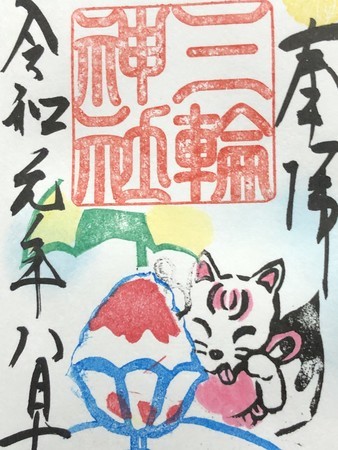 奉拝
三輪
神社
令和元年八月十